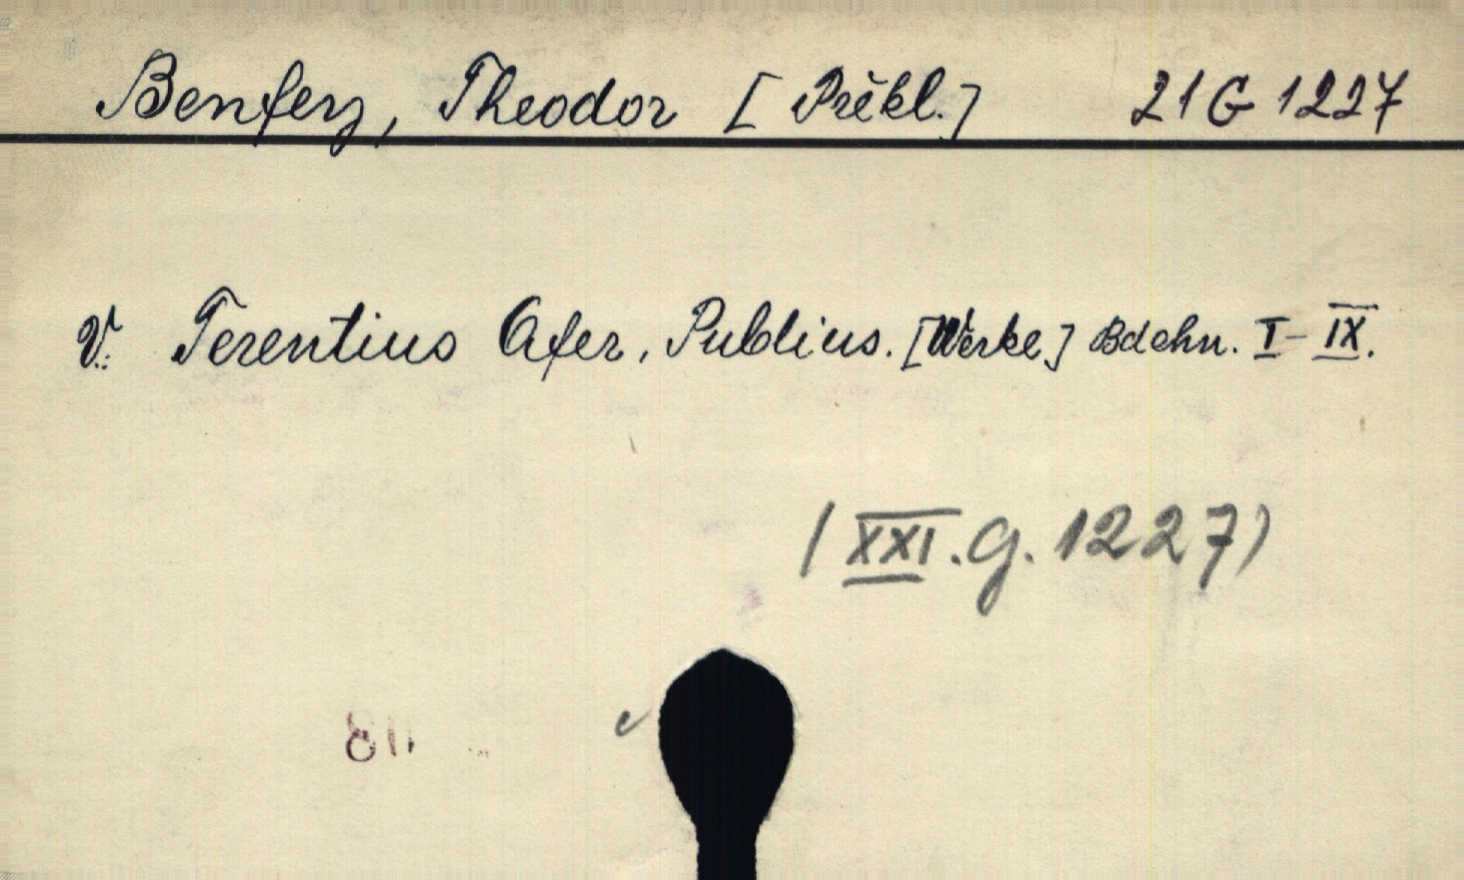 Benfey, Theodor [Překl.] 21 G 1227
V.: Terentius Afer, Publius. [Werke] Bdchn. I-IX.
(XXI.G.1227)